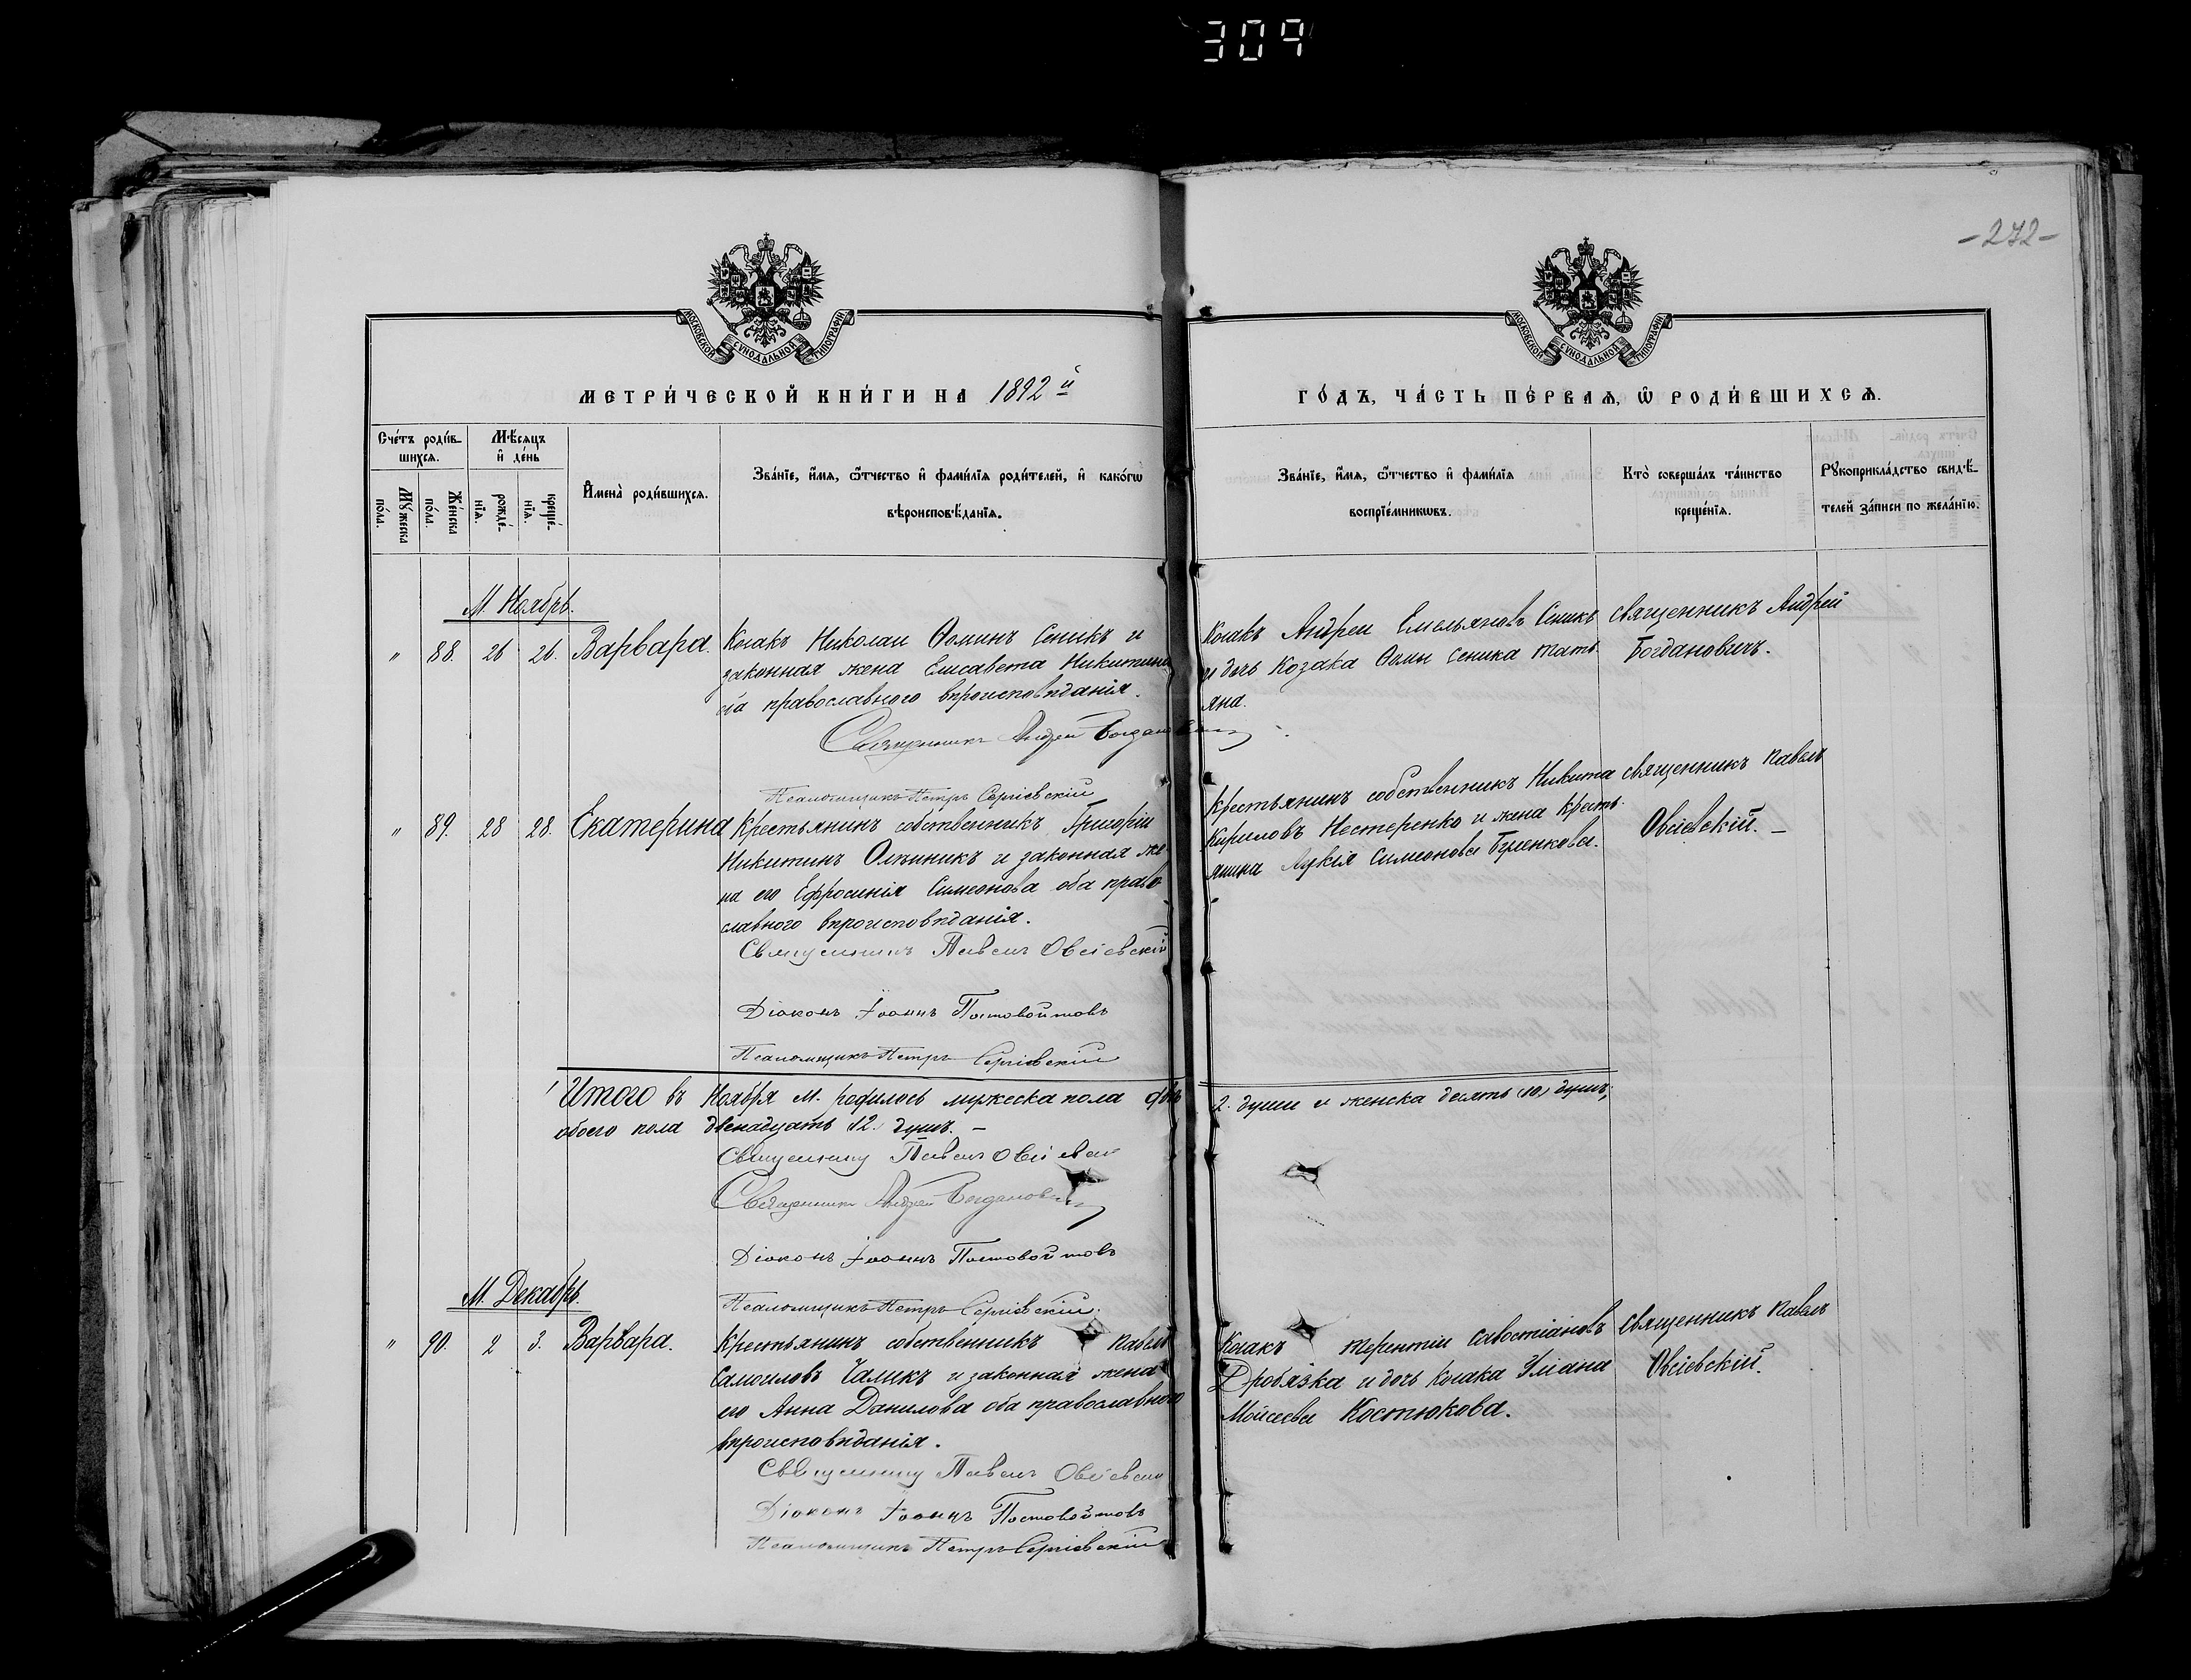 309
-272-
МОСКОВСКОЙ СѴНОДАЛЬНОЙ ТИПОГРАФІИ
МОСКОВСКОЙ СѴНОДАЛЬНОЙ ТИПОГРАФІИ
МЕТРИ́ЧЕСКОЙ КНИ́ГИ НА 1892 й
ГО́ДЪ, ЧА́СТЬ ПЕ́РВАѦ, Ѽ РОДИ́ВШИХСѦ.
Сче́тъ роди́в-
шихсѧ.
Мꙋ́жеска
по́ла.
Же́нска
по́ла.
Мѣ́сѧцъ
и҆ де́нь
рожде́-
нїѧ.
креще́-
нїѧ.
И҆мена̀ роди́вшихсѧ.
Зва́нїе, и҆́мѧ, ѻ҆́тчество и҆ фами́лїѧ роди́телей, и҆ како́гѡ
вѣроисповѣ́данїѧ.
Зва́нїе, и҆́мѧ, ѻ҆́тчество и҆ фами́лїѧ
воспрїе́мникѡвъ.
Кто̀ соверша́лъ та́инство
креще́нїѧ.
Рꙋкоприкла́дство свидѣ́-
телей за́писи по жела́нїю.
М. Ноябрь.
" 88. 26 26. Варвара.
Козакъ Николай Ѳоминъ Сеникъ и
законная жена Елисавета Никитина
оба православного вѣроисповѣданія.
Священникъ Андрей Богдановичъ
Псаломщикъ Петръ Сергіевскій
Козакъ Андрей Емельяновъ Сеникъ
и дочь Козака Ѳомы Сеника Тать-
яна.
Священникъ Андрей
Богдановичъ.
" 89. 28 28. Екатерина
Крестьянинъ собственникъ Григорій
Никитинъ Олѣйникъ и законная же-
на его Ефросинія Симеонова оба право-
славного вѣроисповѣданія.
Священникъ Павелъ Овсіевскій
Діаконъ Іоаннъ Постовойтовъ
Псаломщикъ Петръ Сергіевскій
Крестьянинъ собственникъ Никита
Кириловъ Нестеренко и жена кресть-
янина Лукія Симеонова
Священникъ Павелъ
Овсіевскій. -
Итого въ Ноябрѣ м. родилось мужеска пола двѣ 2. души и женска десять (10) душъ,
обоего пола двенадцать 12. душъ. -
Священникъ Павелъ Овсіевскій
Священникъ Андрей Богдановичъ
Діаконъ Іоаннъ Постовойтовъ
Псаломщикъ Петръ Сергіевскій.
М. Декабрь.
" 90. 2 3. Варвара.
Крестьянинъ собственникъ Павелъ
Самоиловъ Чалыкъ и законная жена
его Анна Данилова оба православного
вѣроисповѣданія.
Священникъ Павелъ Овсіевскій
Діаконъ Іоаннъ Постовойтовъ
Псаломщикъ Петръ Сергіевскій
Козакъ Терентій Савостіановъ
Дробязка и дочь козака
Мойсеева Костюкова.
Священникъ Павелъ
Овсіевскій.